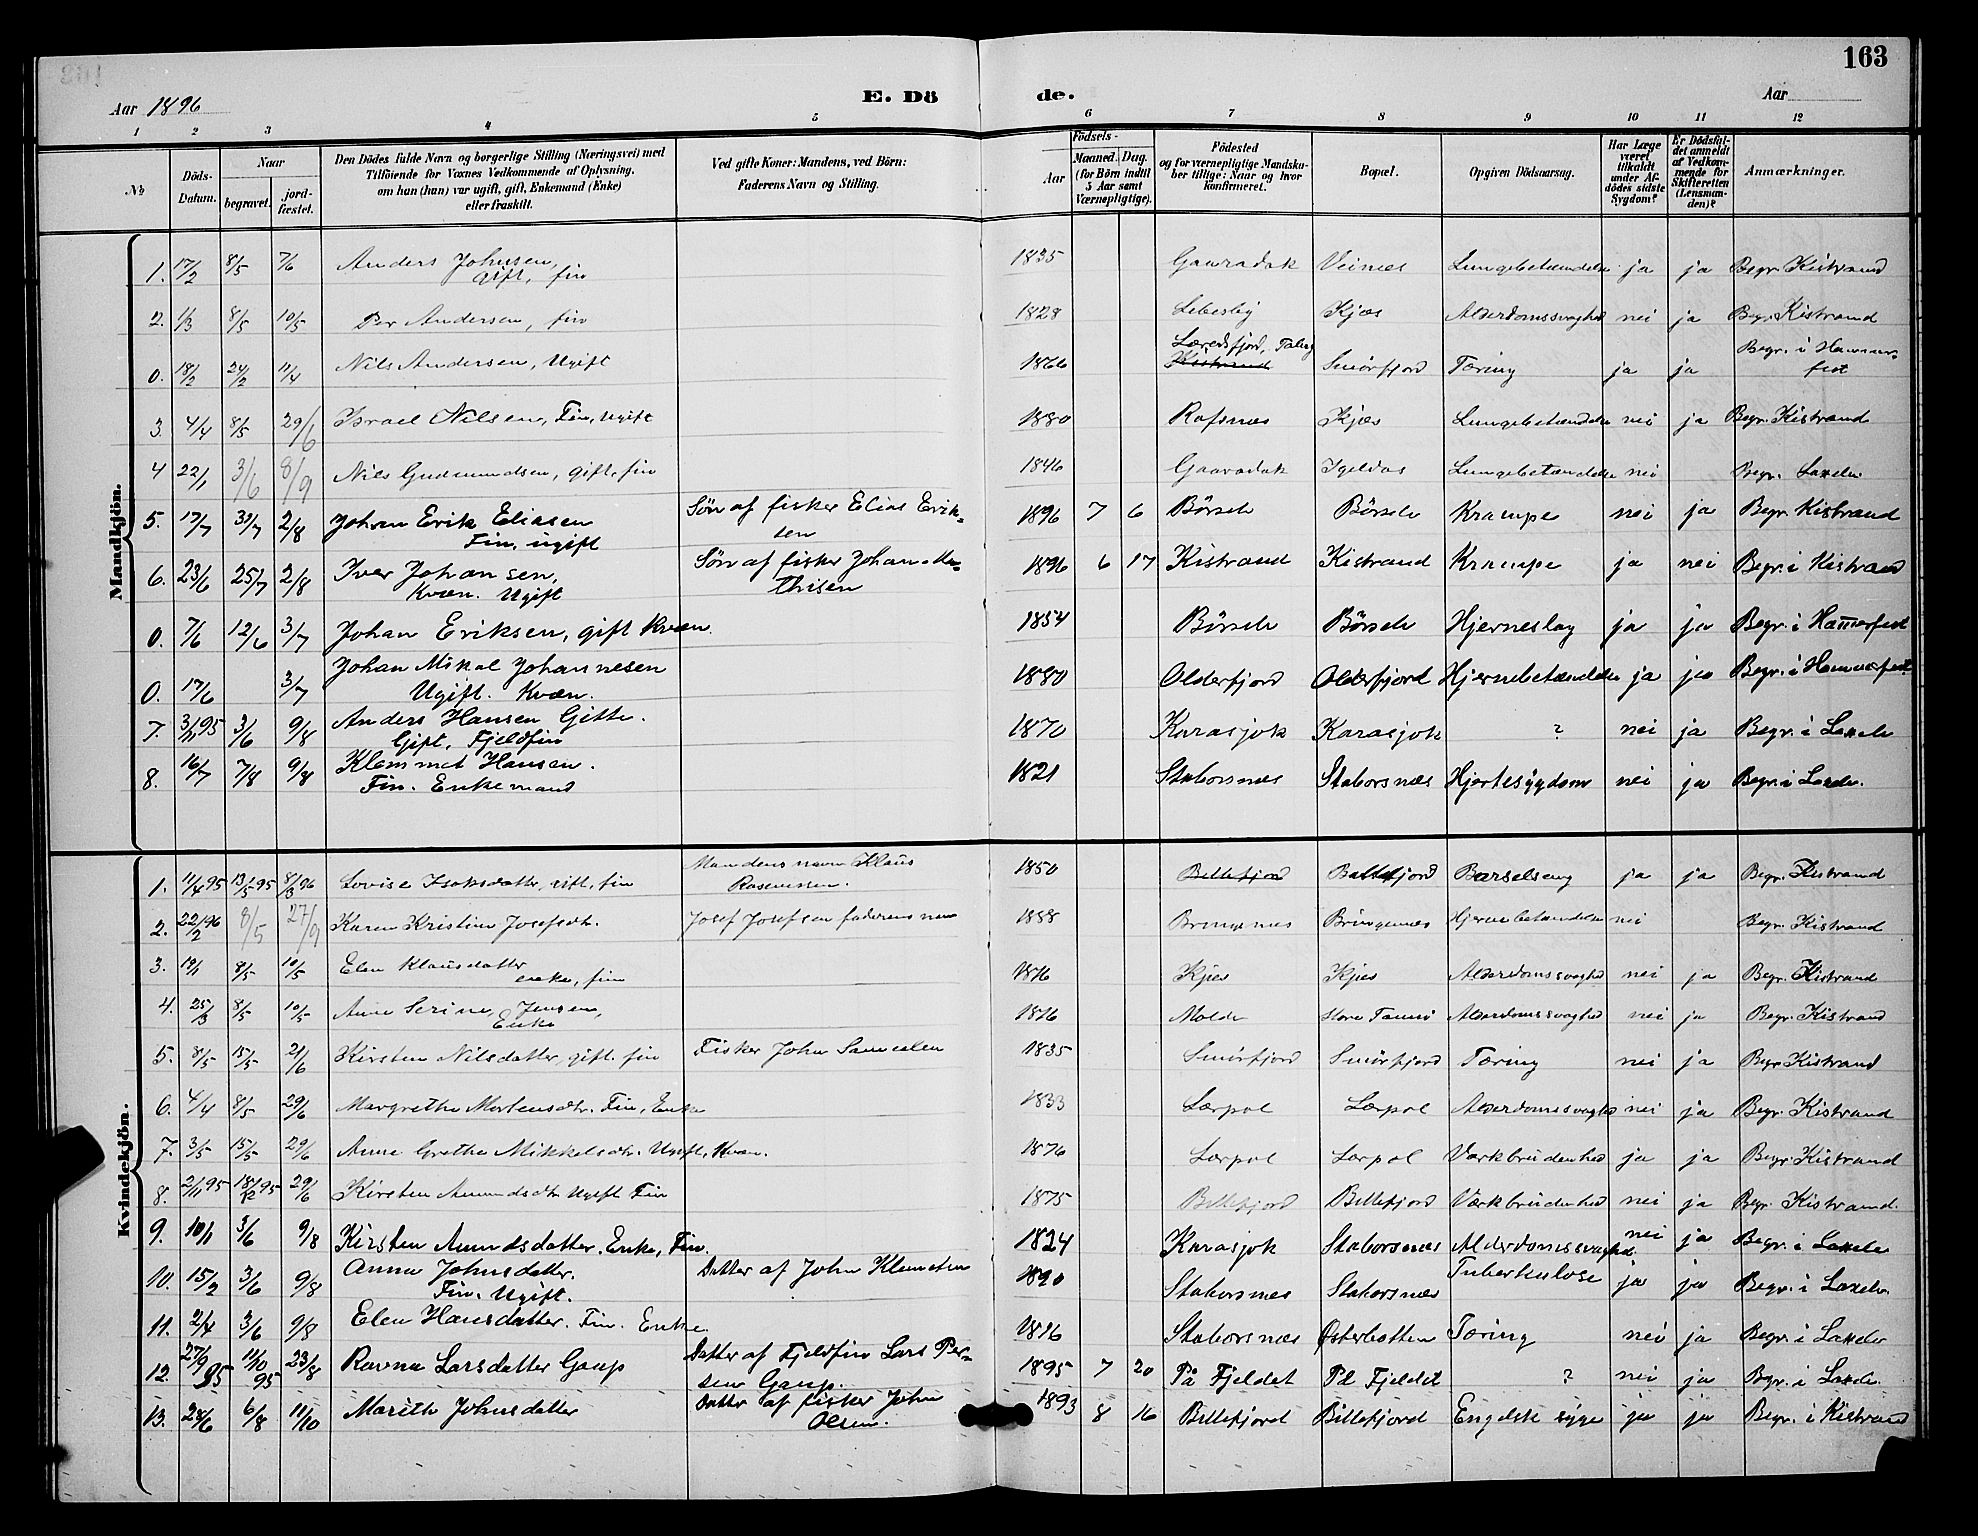 163
Aar 1896
E. Dö de.
Aar
1 2 3 4 5 6 7 8 9 10 11 12
№
Döds-Datum.
Naar
begravet.
jord-fæstet.
Den Dödes fulde Navn og borgerlige Stilling (Næringsvei) med
Tilföiende for Voxnes Vedkommende af Oplysning,
om han (hun) var ugift, gift, Enkemand (Enke)
eller fraskilt.
Ved gifte Koner: Mandens, ved Börn:
Faderens Navn og Stilling.
Födsels-
Aar
Maaned. Dag.
(for Börn indtil
5 Aar samt
Værnepligtige).
Födested
og for værnepligtige Mandska-
ber tillige: Naar og hvor
konfirmeret.
Bopæl.
Opgiven Dödsaarsag.
Har Læge
været
tilkaldt
under Af-
dödes sidste
Sygdom?
Er Dödsfal-
det anmeldt
af Vedkom-
mende for
Skifteretten
(Lensman-
den)?
Anmærkninger.
Mandkjön.
1. 17/2 8/5 7/6 Anders Johnsen, gift, fin 1835 Gaaradak Veinæs Lungebetændelse ja ja Begr. Kistrand
2. 1/3 8/5 10/5 Per Andersen, fin 1828 Lebesby Kjæs Alderdomssvaghed nei ja Begr. Kistrand
0. 18/2 24/2 11/4 Nils Andersen, Ugift 1866 Kistrand Smörfjord Tæring ja ja Begr. i Hammer-fest
3. 4/4 8/5 29/6 Israel Nilsen, Fin, Ugift 1880 Rafsnæs Kjæs Lungebetændelse nei ja Begr. Kistrand
4 22/1 3/6 8/9 Nils Gudmundsen, gift, fin 1846 Gaaradak Igeldas Lungebetændelse nei Begr. Laxelv
5. 17/7 31/7 2/8 Johan Erik Eliasen Fin, ugift Sön af fisker Elias Erik-sen 1896 7 6 Börselv Börselv Krampe nei ja Begr. Kistrand
6. 23/6 25/7 2/8 Iver Johansen, Kvæn. Ugift Sön af fisker Johan Ma-thisen 1896 6 17 Kistrand Kistrand Krampe ja nei Begr. i Kistrand
0. 7/6 12/6 3/7 Johan Eriksen, gift Kvæn. 1854 Börselv Börselv Hjerneslag ja ja Begr. i Hammerfest
0. 17/6 3/7 Johan Mikal Johannesen Ugift. Kvæn. 1880 Olderfjord Olderfjord Hjernebetændelse ja ja Begr. i Hammerfest
7. 3/11 95 3/6 9/8 Anders Hansen Gitte. Gift, Fjeldfin 1870 Karasjok Karasjok ? nei ja Begr. i Laxelv
8. 16/7 7/8 9/8 Klemmet Hansen. Fin. Enkemand 1821 Staborsnæs Staborsnæs Hjertesygdom nei ja Begr. i Laxelv.
Kvindekjön.
1. 11/4 95 13/5 95 8/3 96 Lovise Isaksdatter, gift, fin Mandens navn Klaus Rasmussen. 1850 Billefjord Billefjord Barselseng ja ja Begr. Kistrand
2. 22/2 96 8/5 27/9 Karen Kristine Josefsdtr. Josef Josefsen faderens navn 1888 Bringnæs Bringenæs Hjernebetændelse nei Begr. Kistrand
3. 19/1 8/5 10/5 Elen Klausdatter enke, fin 1816 Kjæs Kjæs Alderdomssvaghed nei ja Begr. Kistrand
4. 25/3 8/5 10/5 Ane Serine, Jensen, Enke 1816 Molde Store Tamsö Alderdomssvaghed nei ja Begr. Kistrand
5. 8/5 15/5 21/6 Kirsten Nilsdatter, gift. fin Fisker John Samuelsen 1835 Smörfjord Smörfjord Tæring nei ja Begr. Kistrand
6. 4/4 8/5 29/6 Margrethe Mortensdtr. Fin, Enke 1833 Lærpol Lærpol Alderdomssvaghed nei ja Begr. Kistrand
7. 3/5 15/5 29/6 Anne Grethe Mikkelsdtr. Ugift, Kvæn. 1876 Lærpol Lærpol Værkbrudenhed ja ja Begr. Kistrand
8. 2/11 95 18/12 95 29/6 Kirsten Amundsdtr Ugift Fin 1875 Billefjord Billefjord Værkbrudenhed nei ja Begr. Kistrand.
9. 10/1 3/6 9/8 Kirsten Amundsdatter. Enke, Fin. 1824 Karasjok Staborsnæs Alderdomssvaghed nei ja Begr. i Laxelv
10. 15/2 3/6 9/8 Anna Johnsdatter. Fin. Ugift. Datter af John Klemetsen 1890 Staborsnæs Staborsnæs Tuberkulose ja ja Begr. i Laxelv.
11. 2/4 3/6 9/8 Elen Hansdatter. Fin. Enke. 1816 Staborsnæs Østerbotten Tæring nei ja Begr. i Laxelv
12. 27/9 95 11/10 95 23/8 Ravna Larsdatter Gaup Datter af Fjeldfin Lars Per-sen Gaup. 1895 7 20 På Fjeldet På Fjeldet ? nei ja Begr. i Laxelv.
13. 28/6 6/8 11/10 Marith Johnsdatter Datter af fisker John Olsen. 1893 8 16 Billefjord Billefjord Engelsk syge ja ja Begr. i Kistrand